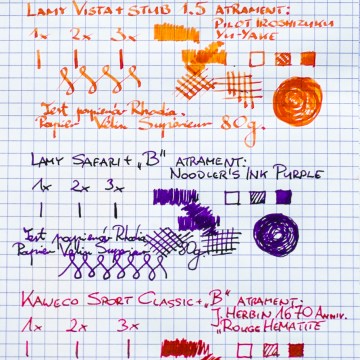 LAMY VISTA + STUB 1.5 ATRAMENT:
PILOT IROSHIZUKU
YU-YAKE
1x 2x 3x
Test papierów Rhodia.
Papier Velin Supérieur 80g.
LAMY SAFARI + „B” ATRAMENT:
NOODLER'S INK PURPLE
1x 2x 3x
Test papierów Rhodia
Papier Velin Superieur 80g.
KAWECO SPORT CLASSIC + „B” ATRAMENT:
J. HERBIN 1670 ANNIV.
"ROUGE HEMATITE
1x 2x 3x